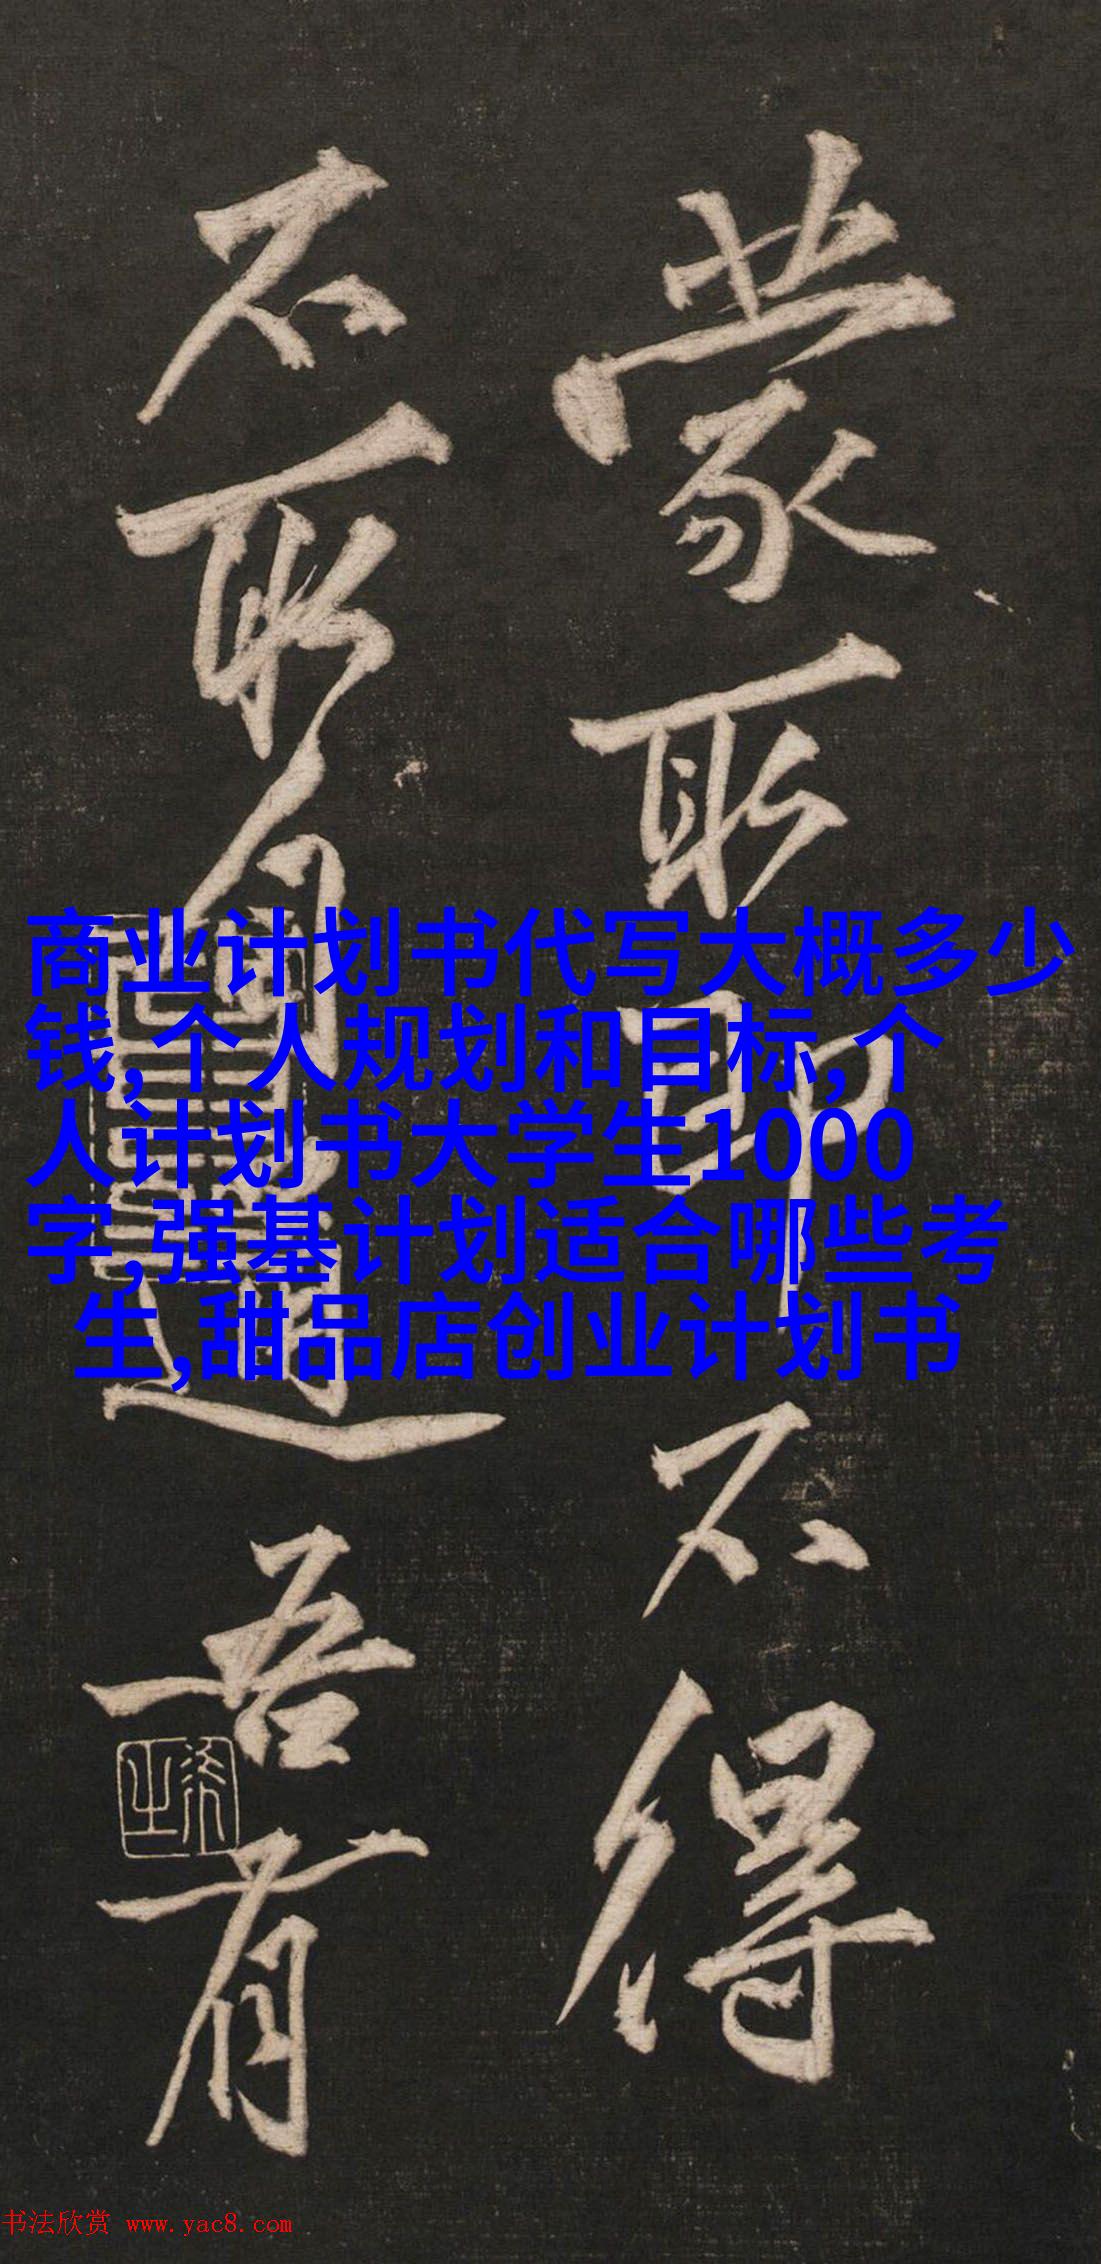 蒙 即不得
不 吾有
商业计划书代写大概多少
钱,个人规划和目标,个
人计划书大学生1000
字,强基计划适合哪些考
生,甜品店创业计划书
书法欣赏 www.yac8.com